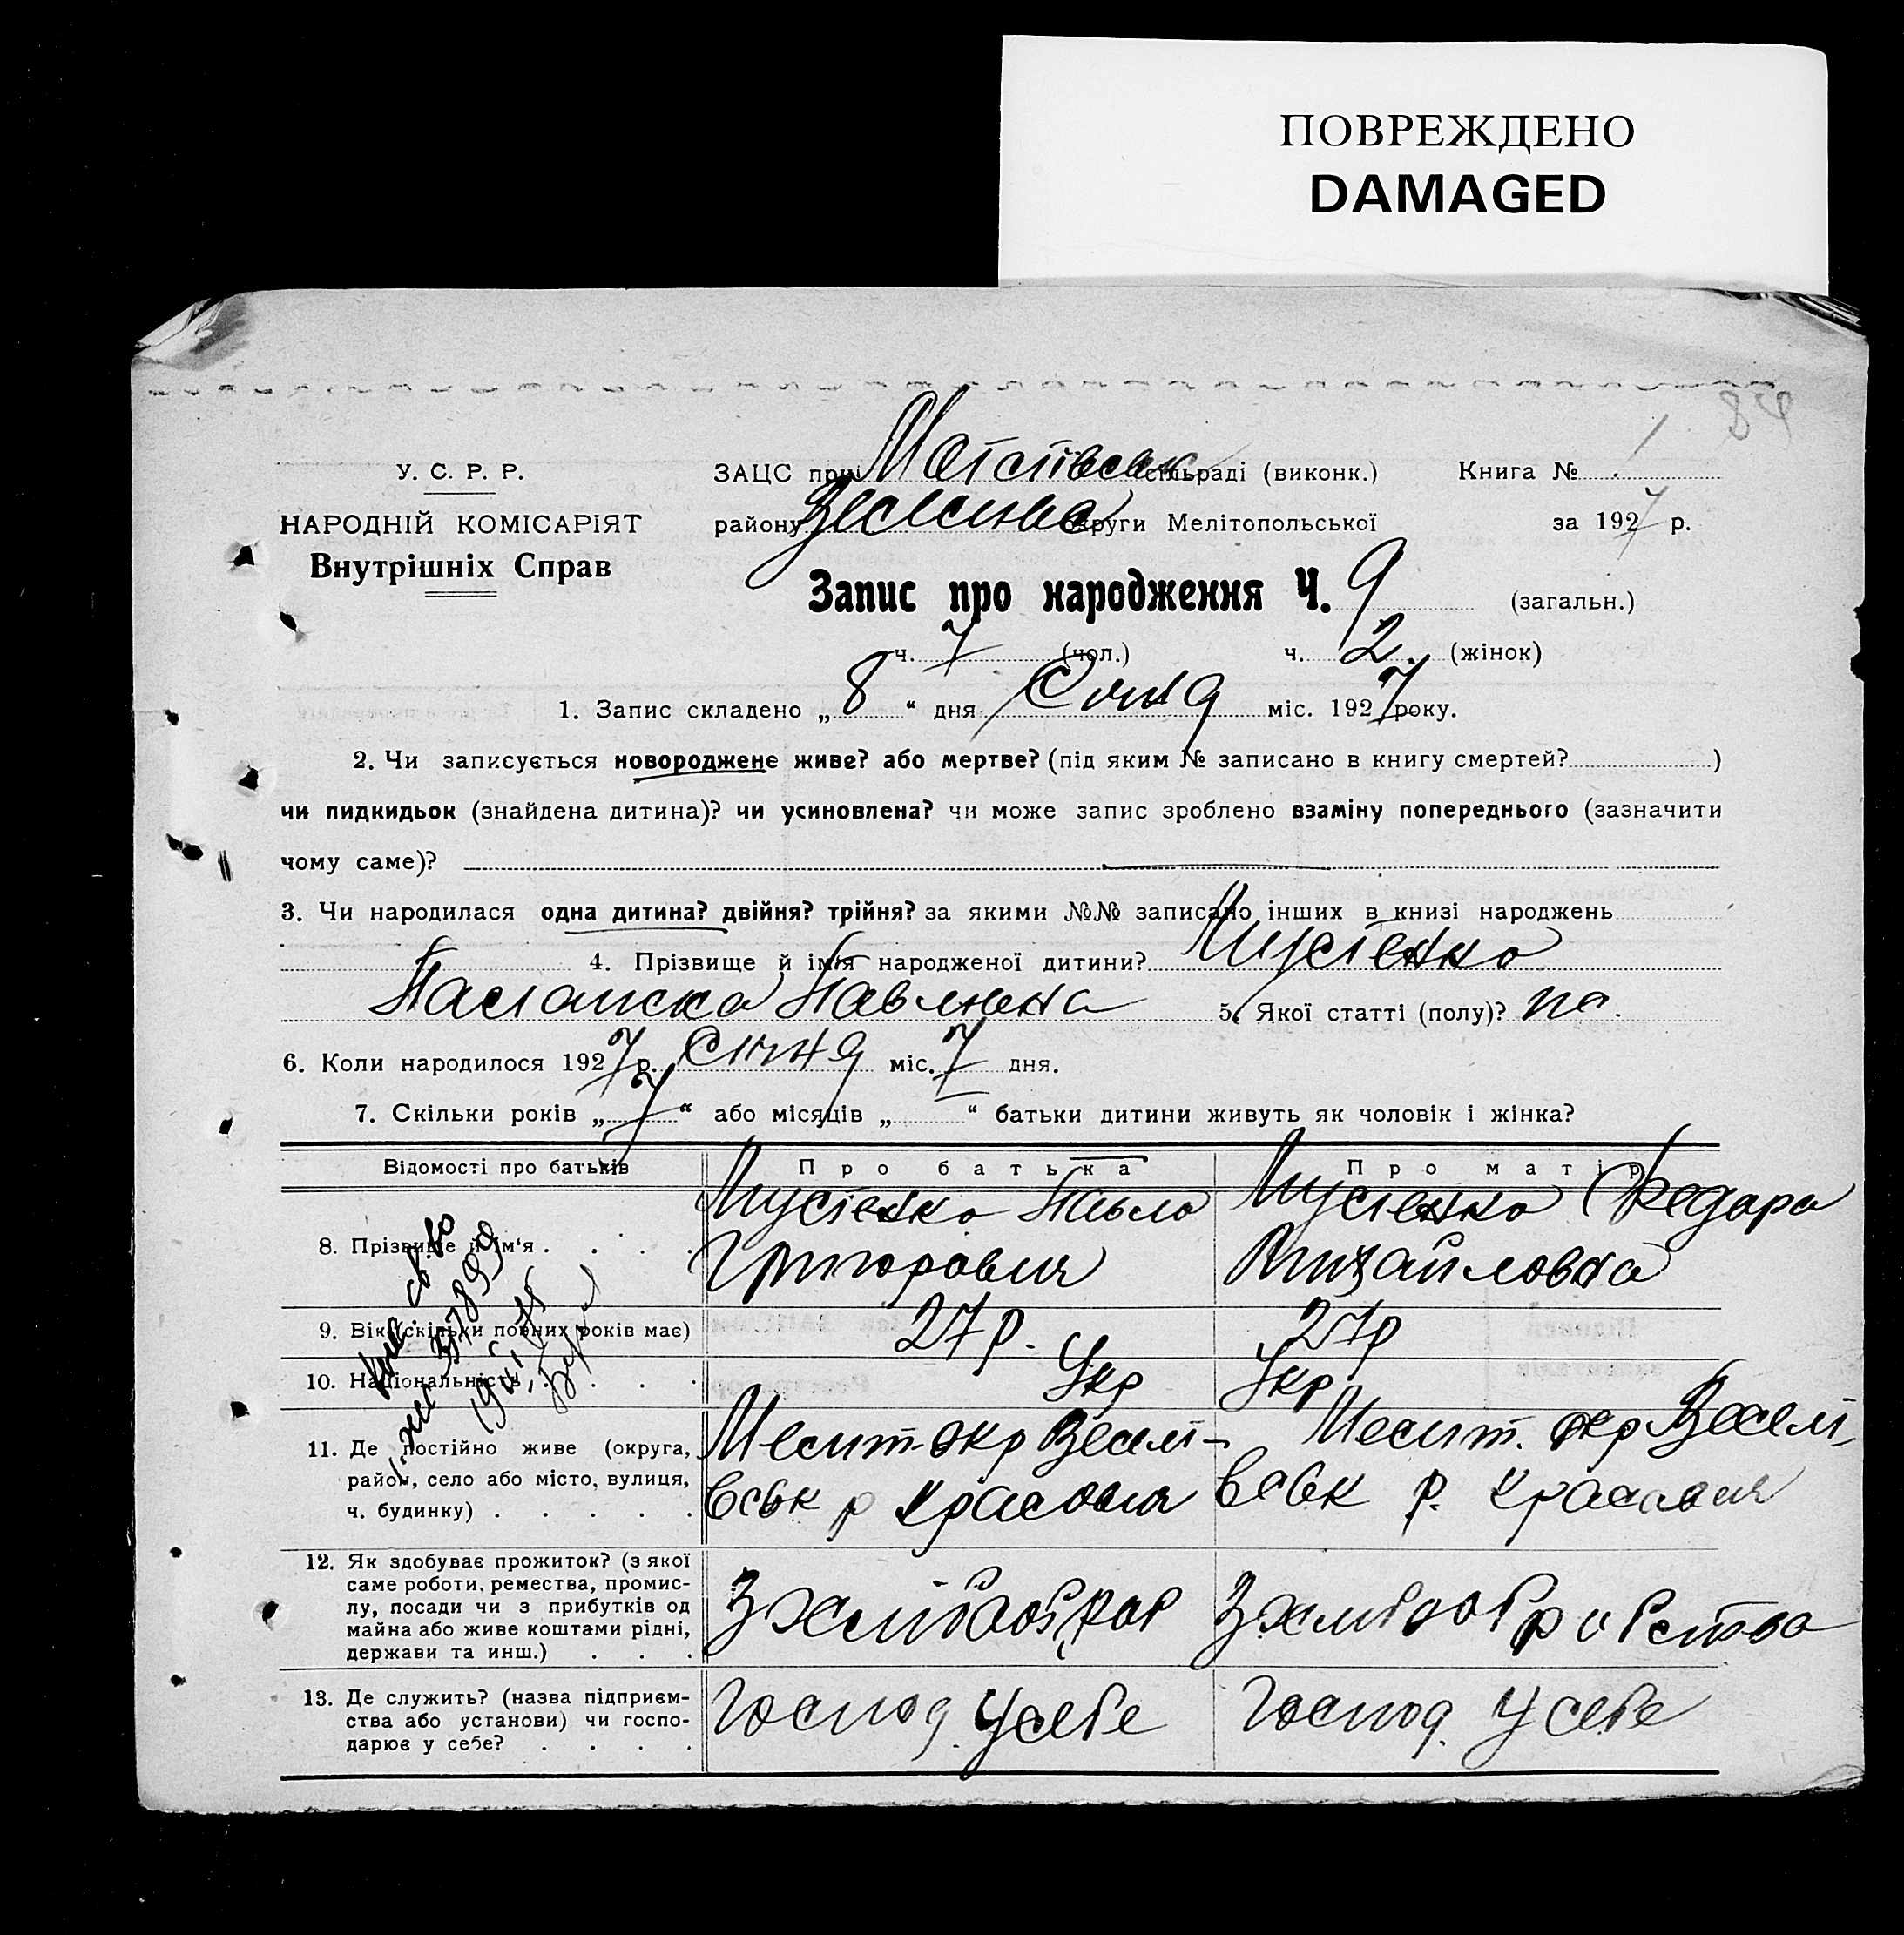 ПОВРЕЖДЕНО
DAMAGED
84
У. С. Р. Р.
НАРОДНІЙ КОМІСАРІЯТ
Внутрішніх Справ
ЗАЦС при сільраді (виконк.) Книга № 1
району округи Мелітопольської за 1927 р.
Запис про народження Ч. 9 (загальн.)
ч. 7 (чол.) ч. 2 (жінок)
1. Запис складено „ 8 “ дня Січня міс. 1927 року.
2. Чи записується новороджене живе? або мертве? (під яким № записано в книгу смертей? )
чи пидкидьок (знайдена дитина)? чи усиновлена? чи може запис зроблено взаміну попереднього (зазначити
чому саме)?
3. Чи народилася одна дитина? двійня? трійня? за якими №№ записано інших в книзі народжень
4. Прізвище й ім'я народженої дитини? Мусіенко
Павловна 5. Якої статті (полу)?
6. Коли народилося 1927 р. Січня міс. 7 дня.
7. Скільки років „ 7 “ або місяців „ “ батьки дитини живуть як чоловік і жінка?
Відомості про батьків Про батька Про матір
8. Прізвище й ім'я . . . . Мусіенко Павло Григорович Мусіенко Федора Михайловна
9. Вік (скільки повних років має) 27 р. 27 р
10. Національність . . . . Укр Укр
11. Де постійно живе (округа,
район, село або місто, вулиця,
ч. будинку) . . . . .
Мелит окр Веселі-
вськ р
Мелит. окр Веселі-
вськ р.
12. Як здобуває прожиток? (з якої
саме роботи, ремества, промис-
лу, посади чи з прибутків од
майна або живе коштами рідні,
держави та инш.) . . .
З хлібороб З хліборобства
13. Де служить? (назва підприєм-
ства або установи) чи госпо-
дарює у себе? . . . .
Господ. у себе Господ. у себе